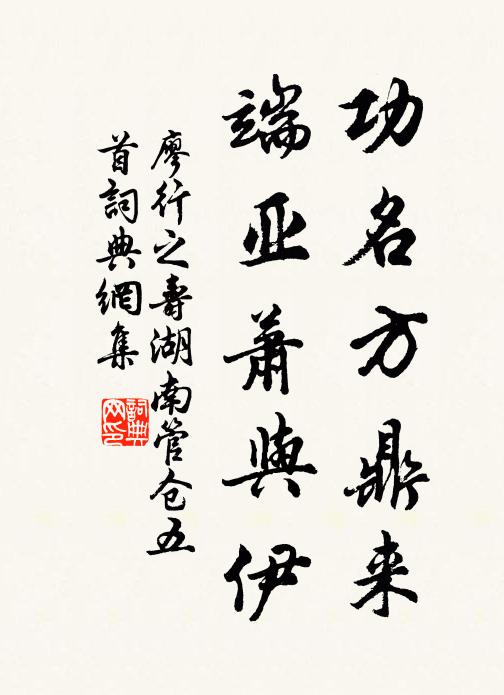 功名方鼎来
端亚萧与伊
廖行之壽湖南管仓五
首詞典網集
詞典网印